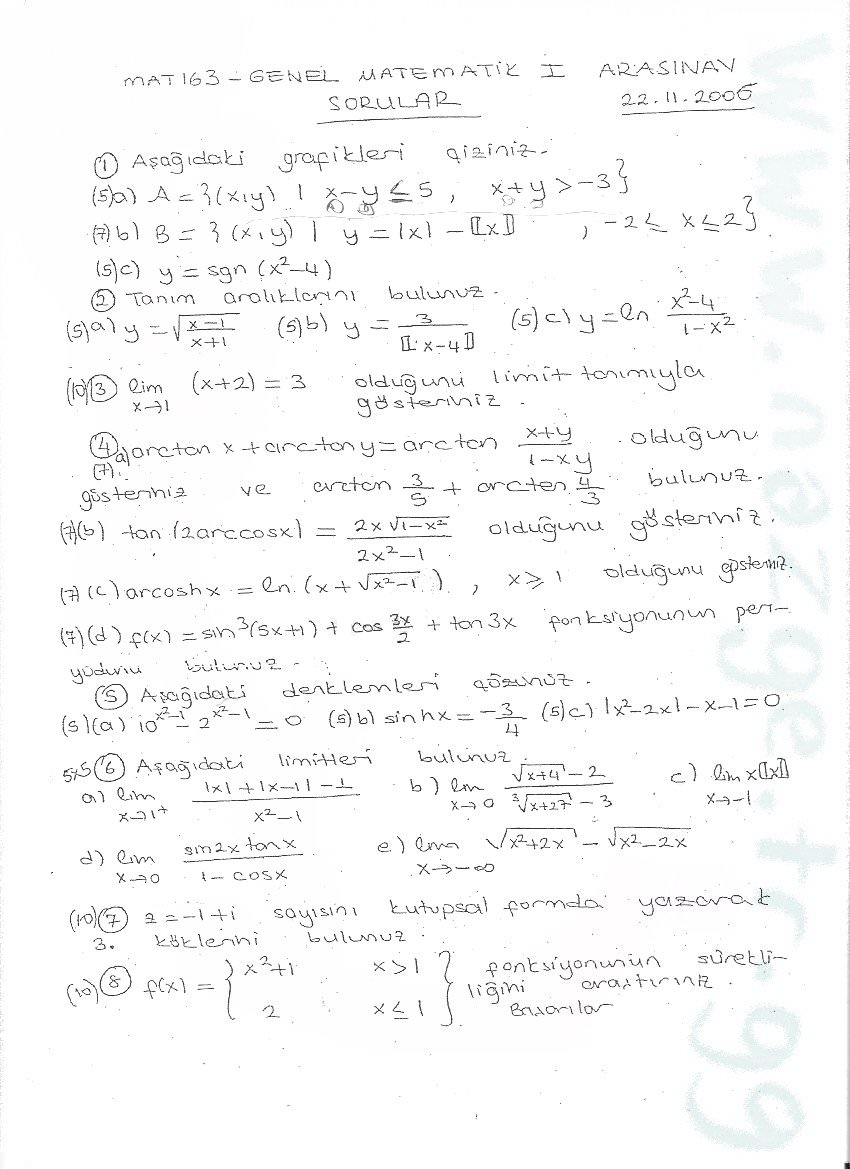 MAT163 - GENEL MATEMATİK I ARASINAV
SORULAR 22.11.2006
① Aşağıdaki grafikleri çiziniz.
(5)a) A = {(x,y) | x-y ≤ 5, x+y > -3}
(7)b) B = {(x,y) | y = |x| - ⟦x⟧, -2 ≤ x ≤ 2}
(5)c) y = sgn (x²-4)
② Tanım aralıklarını bulunuz.
(5)a) y = √((x-1)/(x+1)) (5)b) y = 3/⟦x-4⟧ (5)c) y = ln (x²-4)/(1-x²)
(10)③ lim x→1 (x+2) = 3 olduğunu limit tanımıyla
gösteriniz.
④ a) arctan x + arctan y = arctan (x+y)/(1-xy) olduğunu
(7)
gösteriniz ve arctan 3/5 + arctan 4/3 bulunuz.
(7)(b) tan (2arccosx) = 2x√(1-x²)/(2x²-1) olduğunu gösteriniz.
(7)(c) arcoshx = ln (x + √(x²-1)), x ≥ 1 olduğunu gösteriniz.
(7)(d) f(x) = sin³(5x+1) + cos 3x/2 + tan3x fonksiyonunun peri-
yodunu bulunuz.
⑤ Aşağıdaki denklemleri çözünüz.
(5)(a) 10^(x²-1) - 2^(x²-1) = 0 (5)b) sinhx = -3/4 (5)c) |x²-2x| - x - 1 = 0
5x5 ⑥ Aşağıdaki limitleri bulunuz.
a) lim x→1+ (|x|+|x-1|-1)/(x²-1) b) lim x→0 (√(x+4) - 2)/(∛(x+27) - 3) c) lim x→-1 x⟦x⟧
d) lim x→0 sin2x tanx/(1-cosx) e) lim x→-∞ √(x²+2x) - √(x²-2x)
(10)⑦ z = -1+i sayısını kutupsal formda yazarak
3. köklerini bulunuz.
(10)⑧ f(x) = { x²+1 x>1 } fonksiyonunun sürekli-
2 x≤1 liğini araştırınız.
Başarılar
www.mezge.tr.gg